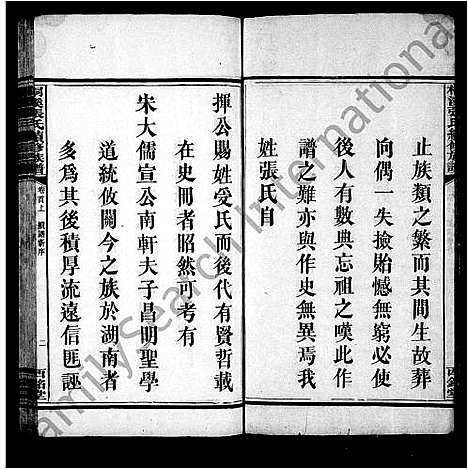 止族類之繁而其間生故葬
向偶一失撿貽憾無窮必使
後人有數典忘祖之嘆此作
譜之難亦與作史無異焉我
姓張氏自
揮公賜姓受氏而後代有賢哲載
在史冊者昭然可考有
宋大儒宣公南軒夫子昌明聖學
道統攸關今之族於湖南者
多為其後積厚流遠信匪誣
氏續修族譜
卷首上
二
FamilySearch International